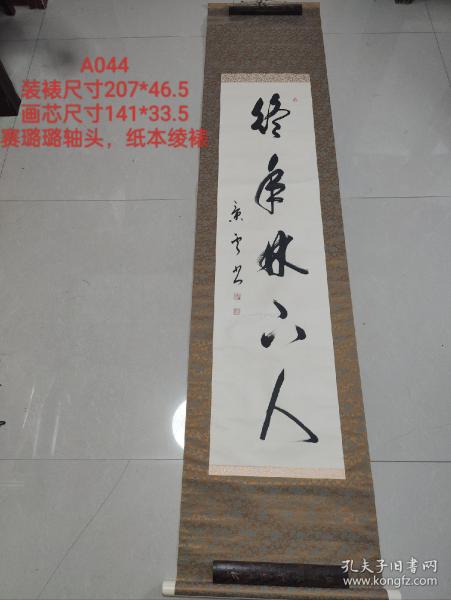 A044
装裱尺寸207*46.5
画芯尺寸141*33.5
赛璐璐轴头，纸本绫裱
终年林下人
书
孔夫子旧书网
www.kongfz.com